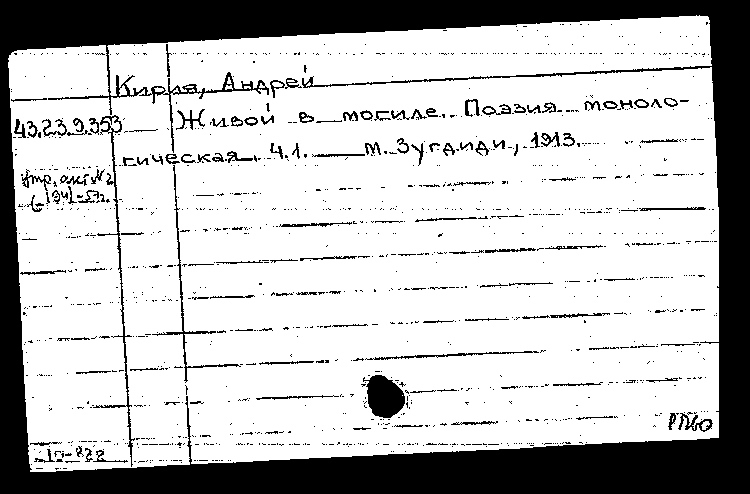 Кирия, Андрей
43.23.9.353 Живой в могиле. Поэзия моноло-
гическая. Ч.1. м. Зугдиди, 1913.
утр. акт №2
(-1941-57г.
-10-822